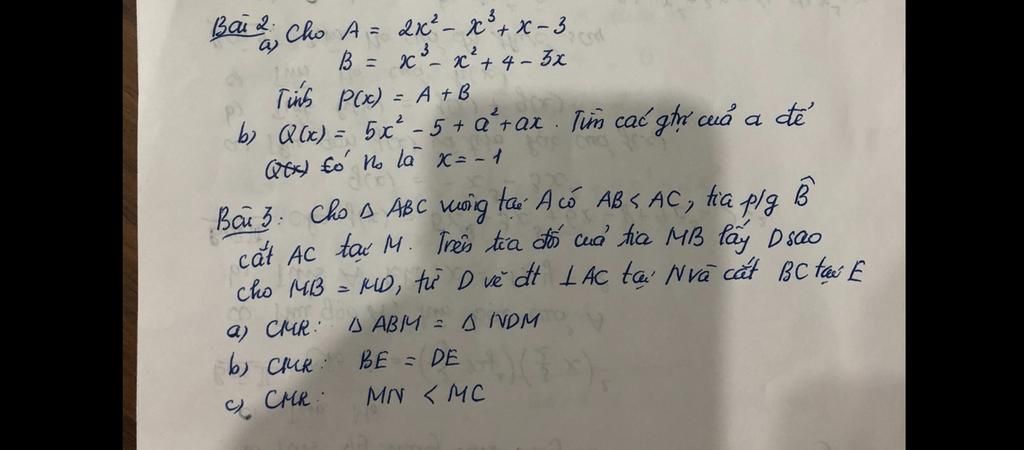 Bài 2:
a) Cho A = 2x² - x³ + x - 3
B = x³ - x² + 4 - 3x
Tính P(x) = A + B
b) Q(x) = 5x² - 5 + a² + ax. Tìm các gtrị cuả a để
Q(x) có no là x = -1
Bài 3: Cho Δ ABC vuông tại A có AB < AC, tia p/g B̂
cắt AC tại M. Trên tia đối cuả tia MB lấy D sao
cho MB = MD, từ D vẽ đt ⊥ AC tại N và cắt BC tại E
a) CMR: Δ ABM = Δ NDM
b) CMR: BE = DE
c) CMR: MN < MC